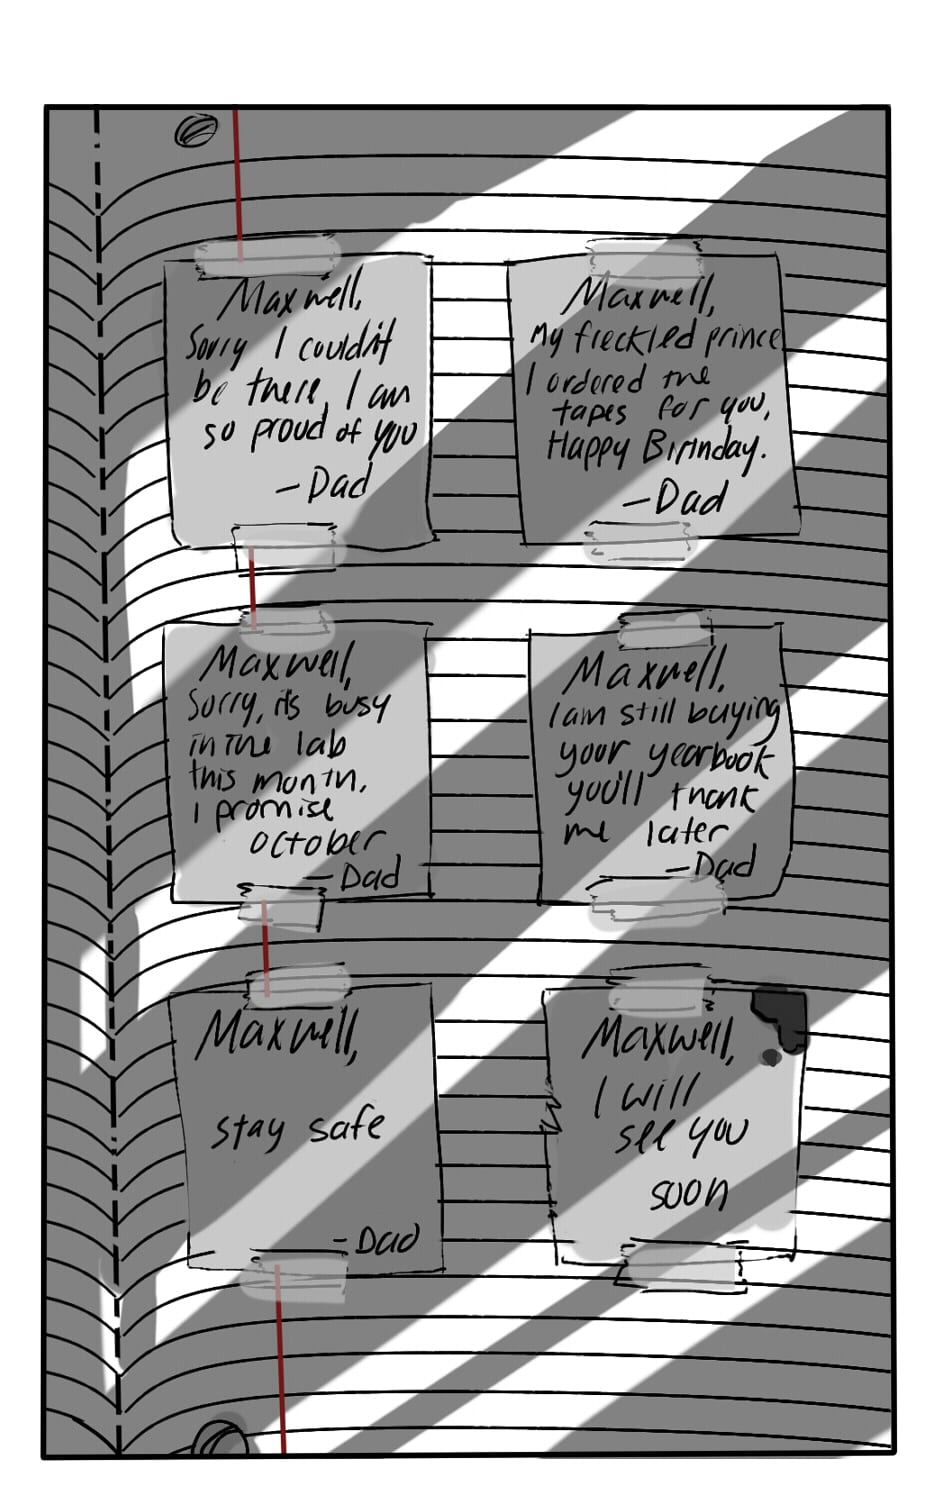 Maxwell,
Sorry I couldn't
be there, I am
so proud of you
-Dad
Maxwell,
My freckled prince
I ordered the
tapes for you,
Happy Birthday.
-Dad
Maxwell,
Sorry, it's busy
in the lab
this month.
I promise
october
-Dad
Maxwell,
I am still buying
your yearbook
you'll thank
me later
-Dad
Maxwell,
stay safe
-Dad
Maxwell,
I will
see you
soon